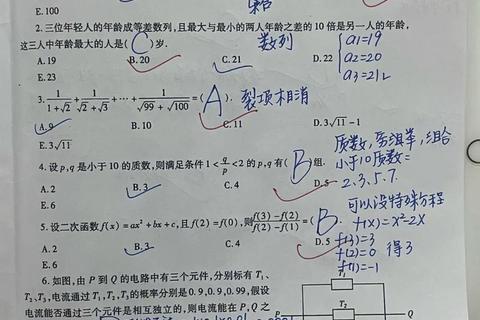 E.100
2.三位年轻人的年龄成等差数列,且最大与最小的两人年龄之差的 10 倍是另一人的年龄,
这三人中年龄最大的人是( C )岁.
数列
A.19 B.20 C.21 D.22
E.23
a1=19
a2=20
a3=21
3. 1/(1+√2) + 1/(√2+√3) + ⋯ + 1/(√99+√100) =( A ). 裂项相消
A.9 B.10 C.11 D.3√11-1
E.3√11
质数,穷举举,组合
小于10质数=
2.3.5.7.
4.设 p,q 是小于 10 的质数,则满足条件 1<q/p<2 的 p,q 有( B )组.
A.2 B.3 C.4 D.5
E.6
可以设特殊方程
5.设二次函数 f(x)=ax²+bx+c,且 f(2)=f(0),则 (f(3)-f(2))/(f(2)-f(1)) =( B ).
f(x)=x²-2x
A.2 B.3 C.4 D.5
E.6
f(3)=3
f(2)=0 得3
f(1)=-1
6.如图,由 P 到 Q 的电路中有三个元件,分别标有 T₁、
T₂、T₃,电流通过 T₁,T₂,T₃ 的概率分别是 0.9,0.9,0.99,假设
电流能否通过三个元件是相互独立的,则电流能在 P,Q 之
T₁
T₂
P
Q